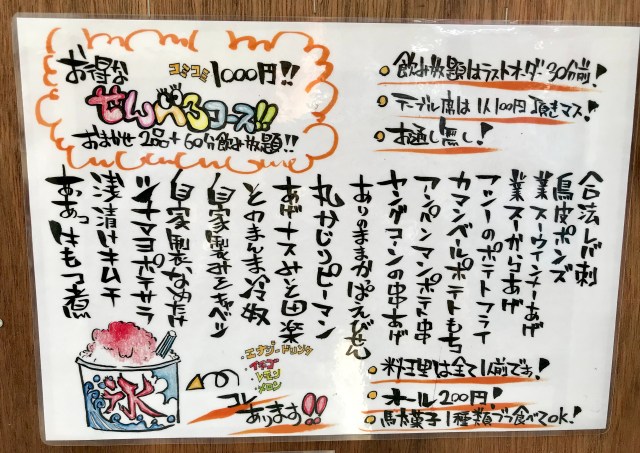 お得な
コミコミ 1000円!!
せんべろコース!!
おまかせ2品+60分飲み放題!!
飲み放題はラストオーダー30分前!
テーブル席は1人100円頂きマス!
お通し無し!
合法レバ刺
鳥皮ポンズ
業スーウインナーあげ
業スーからあげ
アツシーのポテトフライ
カマンベールポテトもち
アンパンマンポテト串
ヤングコーンの串あげ
ありのままかぱえびせん
丸かじりピーマン
あげナスみそ田楽
とのまんま冷奴
自家製みそキャベツ
自家製なめたけ
ツナマヨポテサラ
浅漬けキムチ
あぁっはもつ煮
料理は全て1人前です!
オール200円!
駄菓子1種類づつ食べてOK!
・エナジードリンク
・イチゴ
・レモン
・メロン
コレあります!!
氷